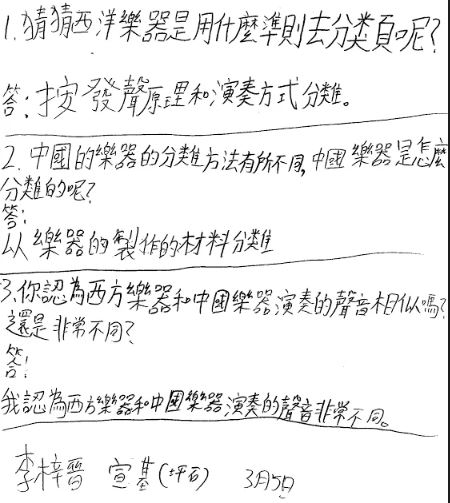 1.猜猜西洋樂器是用什麼準則去分類頁呢?
答:按發聲原理和演奏方式分類。
2.中國的樂器的分類方法有所不同,中國樂器是怎麼
分類的呢?
答:
以樂器的製作的材料分類
3.你認為西方樂器和中國樂器演奏的聲音相似嗎?
還是非常不同?
答:
我認為西方樂器和中國樂器演奏的聲音非常不同。
李梓晉 宣基(坪石) 3月5日